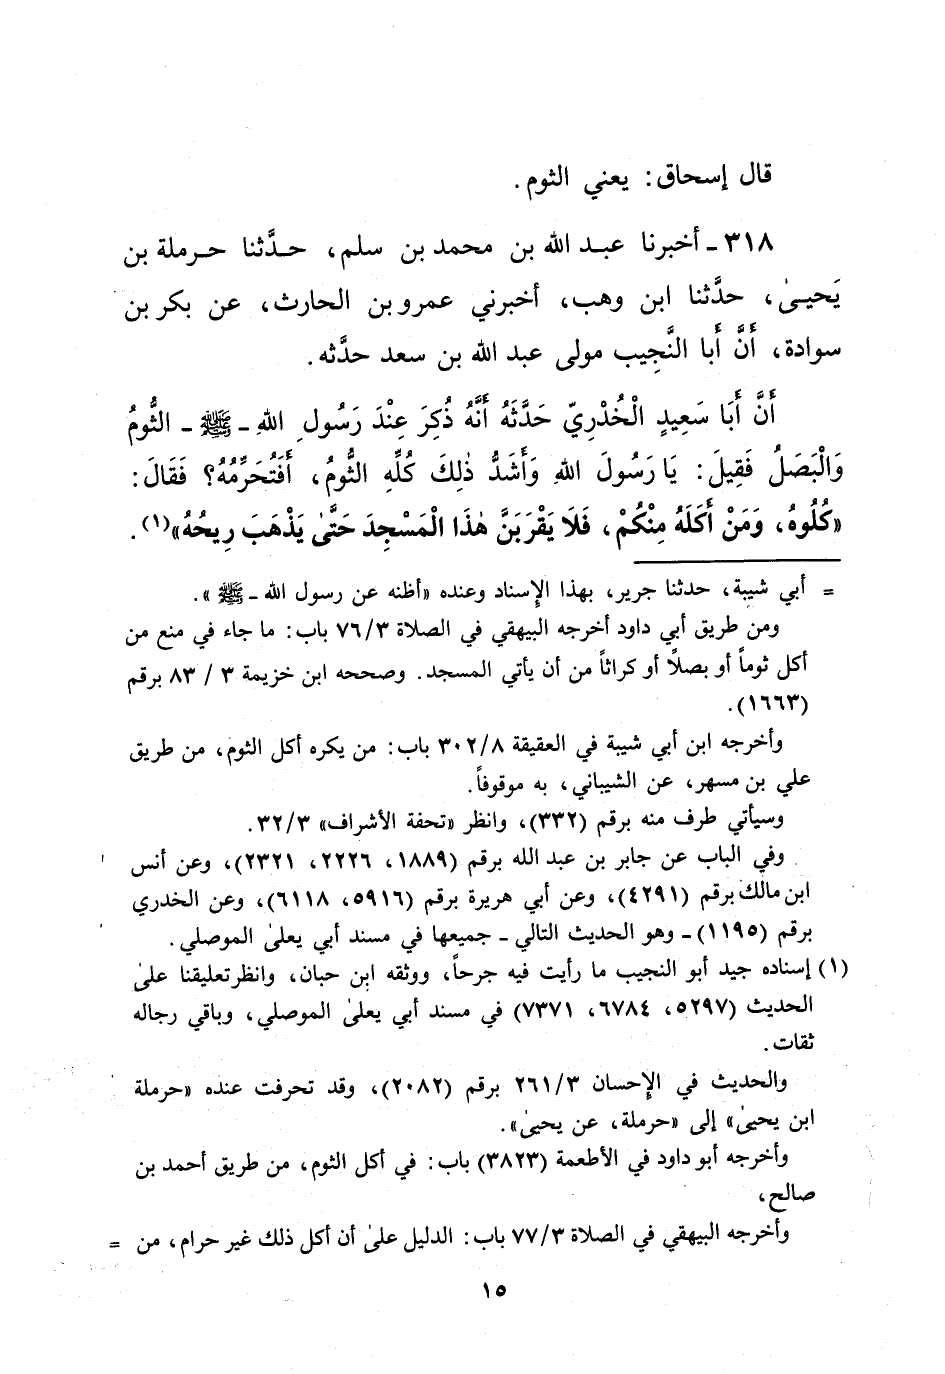 قال إسحاق: يعني الثوم.
٣١٨ ـ أخبرنا عبد الله بن محمد بن سلم، حدَّثنا حرملة بن
يَحيىٰ، حدَّثنا ابن وهب، أخبرني عمرو بن الحارث، عن بكر بن
سوادة، أَنَّ أَبا النَّجيب مولى عبد الله بن سعد حدَّثه.
أَنَّ أَبَا سَعِيدٍ الْخُدْرِيّ حَدَّثَهُ أَنَّهُ ذُكِرَ عِنْدَ رَسُولِ اللهِ ـ ﷺ ـ الثُّومُ
وَالْبَصَلُ فَقِيلَ: يَا رَسُولَ اللهِ وَأَشَدُّ ذٰلِكَ كُلِّهِ الثُّومُ، أَفَتُحَرِّمُهُ؟ فَقَالَ:
«كُلُوهُ، وَمَنْ أَكَلَهُ مِنْكُمْ، فَلَا يَقْرَبَنَّ هٰذَا الْمَسْجِدَ حَتَّىٰ يَذْهَبَ رِيحُهُ»(١).
= أبي شيبة، حدثنا جرير، بهذا الإسناد وعنده «أظنه عن رسول الله ـ ﷺ ».
ومن طريق أبي داود أخرجه البيهقي في الصلاة ٧٦/٣ باب: ما جاء في منع من
أكل ثوماً أو بصلاً أو كراثاً من أن يأتي المسجد. وصححه ابن خزيمة ٣ / ٨٣ برقم
(١٦٦٣).
وأخرجه ابن أبي شيبة في العقيقة ٣٠٢/٨ باب: من يكره أكل الثوم، من طريق
علي بن مسهر، عن الشيباني، به موقوفاً.
وسيأتي طرف منه برقم (٣٣٢)، وانظر «تحفة الأشراف» ٣٢/٣.
وفي الباب عن جابر بن عبد الله برقم (١٨٨٩، ٢٢٢٦، ٢٣٢١)، وعن أنس
ابن مالك برقم (٤٢٩١)، وعن أبي هريرة برقم (٥٩١٦، ٦١١٨)، وعن الخدري
برقم (١١٩٥) ـ وهو الحديث التالي ـ جميعها في مسند أبي يعلىٰ الموصلي.
(١) إسناده جيد أبو النجيب ما رأيت فيه جرحاً، ووثقه ابن حبان، وانظر تعليقنا علىٰ
الحديث (٥٢٩٧، ٦٧٨٤، ٧٣٧١) في مسند أبي يعلىٰ الموصلي، وباقي رجاله
ثقات.
والحديث في الإحسان ٢٦١/٣ برقم (٢٠٨٢)، وقد تحرفت عنده «حرملة
ابن يحيىٰ» إلى «حرملة، عن يحيىٰ».
وأخرجه أبو داود في الأطعمة (٣٨٢٣) باب: في أكل الثوم، من طريق أحمد بن
صالح،
وأخرجه البيهقي في الصلاة ٧٧/٣ باب: الدليل علىٰ أن أكل ذلك غير حرام، من =
١٥